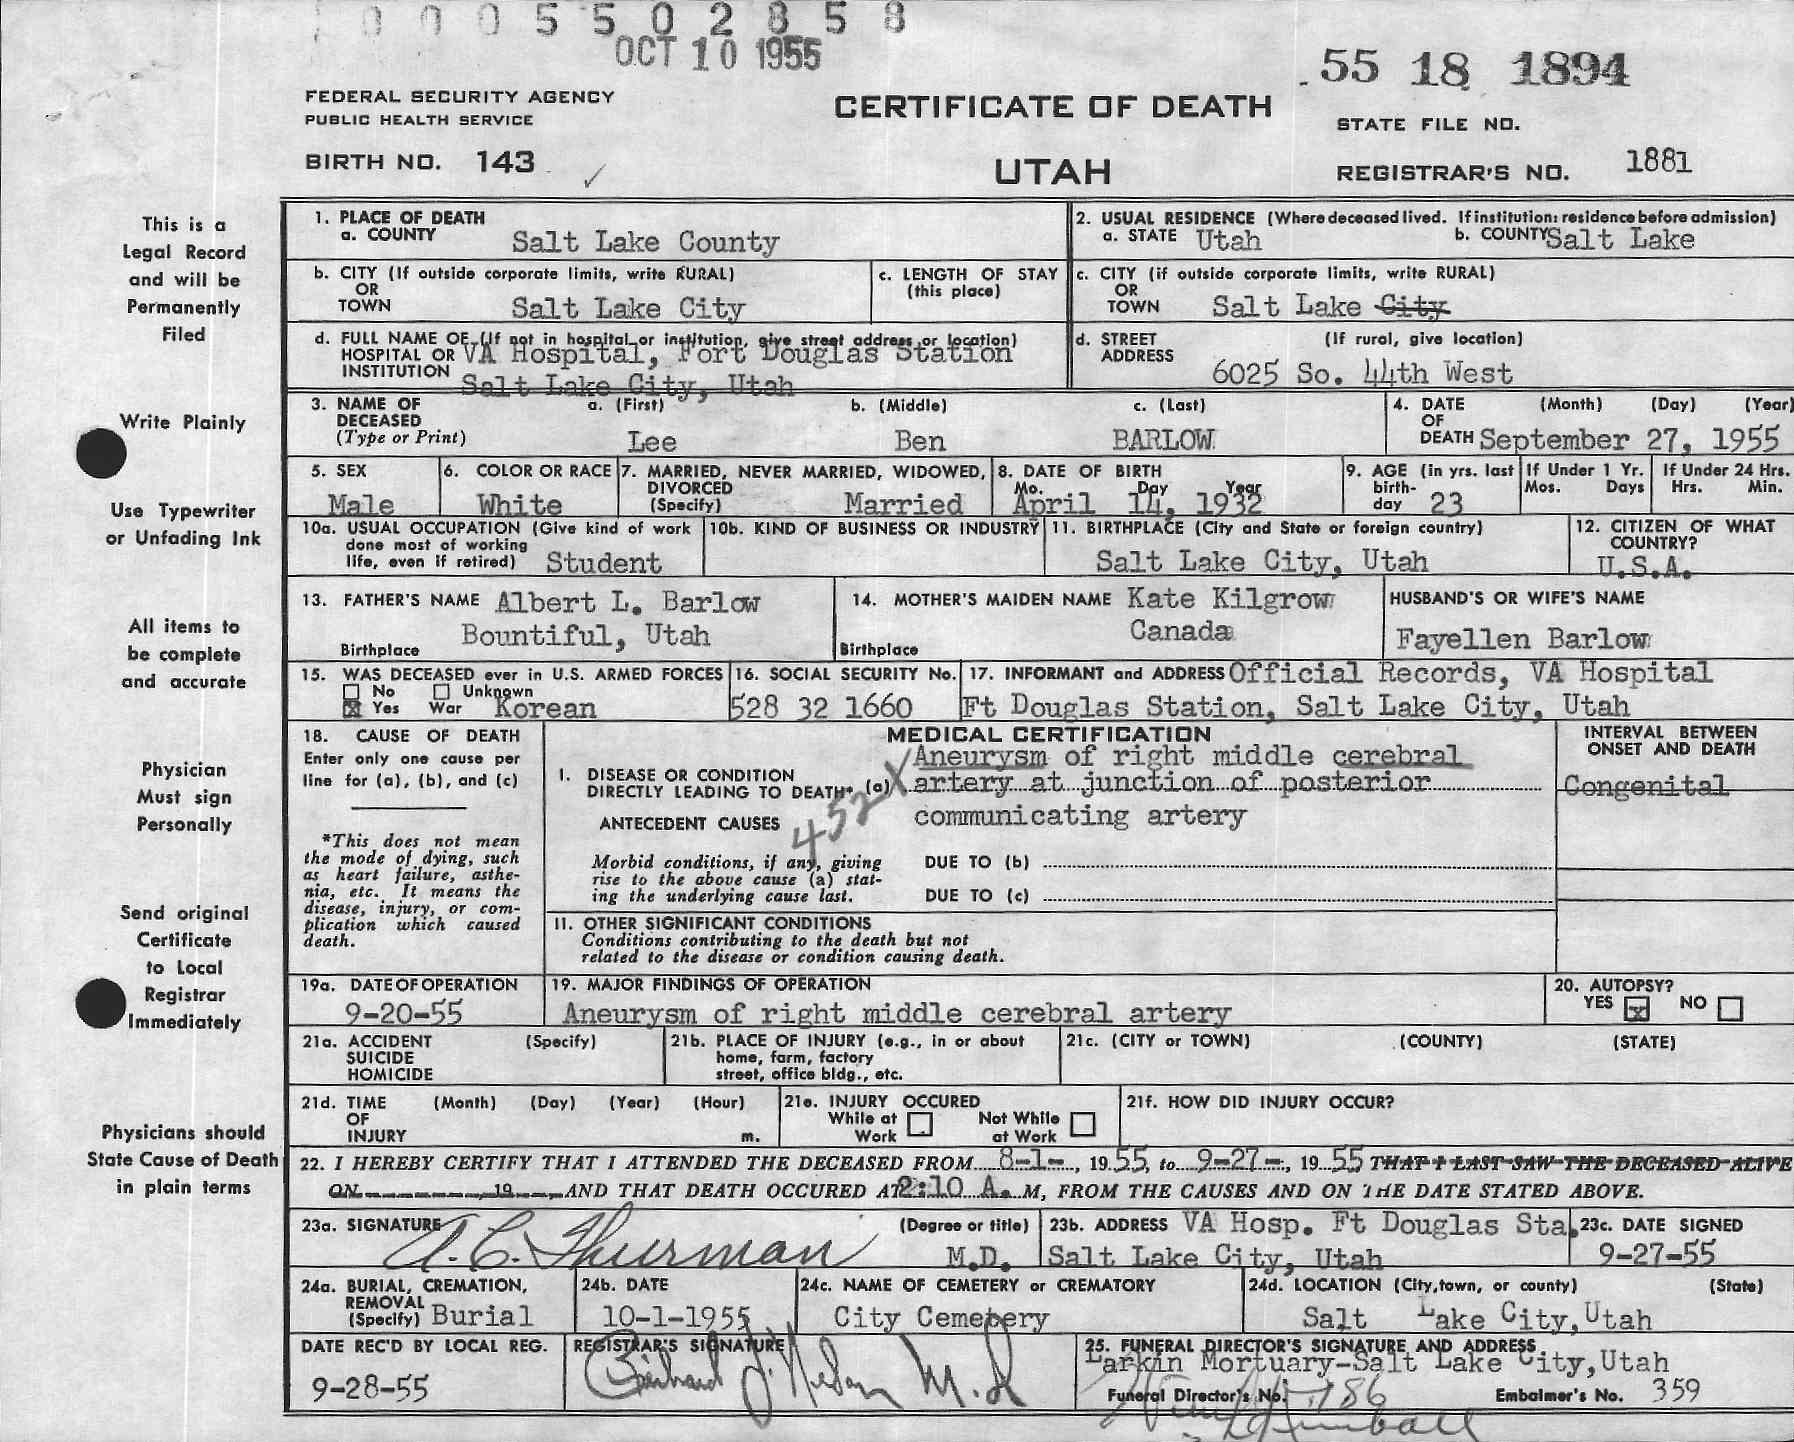 0 0 0 5 5 0 2 8 5 8
OCT 10 1955
55 18 1894
FEDERAL SECURITY AGENCY
PUBLIC HEALTH SERVICE
CERTIFICATE OF DEATH
STATE FILE NO.
BIRTH NO. 143
UTAH
REGISTRAR'S NO. 1881
This is a
Legal Record
and will be
Permanently
Filed
Write Plainly
Use Typewriter
or Unfading Ink
All items to
be complete
and accurate
Physician
Must sign
Personally
Send original
Certificate
to Local
Registrar
Immediately
Physicians should
State Cause of Death
in plain terms
1. PLACE OF DEATH
a. COUNTY Salt Lake County
2. USUAL RESIDENCE (Where deceased lived. If institution: residence before admission)
a. STATE Utah b. COUNTY Salt Lake
b. CITY (If outside corporate limits, write RURAL)
OR
TOWN Salt Lake City
c. LENGTH OF STAY
(this place)
c. CITY (if outside corporate limits, write RURAL)
OR
TOWN Salt Lake City
d. FULL NAME OF (If not in hospital or institution, give street address or location)
HOSPITAL OR VA Hospital, Fort Douglas Station
INSTITUTION Salt Lake City, Utah
d. STREET (If rural, give location)
ADDRESS 6025 So. 44th West
3. NAME OF a. (First) b. (Middle) c. (Last)
DECEASED
(Type or Print) Lee Ben BARLOW
4. DATE (Month) (Day) (Year)
OF
DEATH September 27, 1955
5. SEX
Male
6. COLOR OR RACE
White
7. MARRIED, NEVER MARRIED, WIDOWED,
DIVORCED
(Specify) Married
8. DATE OF BIRTH
Mo. Day Year
April 14, 1932
9. AGE (in yrs. last
birth-
day 23
If Under 1 Yr.
Mos. Days
If Under 24 Hrs.
Hrs. Min.
10a. USUAL OCCUPATION (Give kind of work
done most of working
life, even if retired) Student
10b. KIND OF BUSINESS OR INDUSTRY
11. BIRTHPLACE (City and State or foreign country)
Salt Lake City, Utah
12. CITIZEN OF WHAT
COUNTRY?
U.S.A.
13. FATHER'S NAME Albert L. Barlow
Bountiful, Utah
Birthplace
14. MOTHER'S MAIDEN NAME Kate Kilgrow
Canada
Birthplace
HUSBAND'S OR WIFE'S NAME
Fayellen Barlow
15. WAS DECEASED ever in U.S. ARMED FORCES
No Unknown
Yes War Korean
16. SOCIAL SECURITY No.
528 32 1660
17. INFORMANT and ADDRESS Official Records, VA Hospital
Ft Douglas Station, Salt Lake City, Utah
18. CAUSE OF DEATH
Enter only one cause per
line for (a), (b), and (c)
*This does not mean
the mode of dying, such
as heart failure, asthe-
nia, etc. It means the
disease, injury, or com-
plication which caused
death.
MEDICAL CERTIFICATION
Aneurysm of right middle cerebral
I. DISEASE OR CONDITION
DIRECTLY LEADING TO DEATH* (a) artery at junction of posterior
communicating artery
ANTECEDENT CAUSES
452X
Morbid conditions, if any, giving
rise to the above cause (a) stat-
ing the underlying cause last.
DUE TO (b)
DUE TO (c)
INTERVAL BETWEEN
ONSET AND DEATH
Congenital
II. OTHER SIGNIFICANT CONDITIONS
Conditions contributing to the death but not
related to the disease or condition causing death.
19a. DATE OF OPERATION
9-20-55
19. MAJOR FINDINGS OF OPERATION
Aneurysm of right middle cerebral artery
20. AUTOPSY?
YES x NO
21a. ACCIDENT (Specify)
SUICIDE
HOMICIDE
21b. PLACE OF INJURY (e.g., in or about
home, farm, factory
street, office bldg., etc.
21c. (CITY or TOWN) (COUNTY) (STATE)
21d. TIME (Month) (Day) (Year) (Hour)
OF
INJURY m.
21e. INJURY OCCURED
While at Not While
Work at Work
21f. HOW DID INJURY OCCUR?
22. I HEREBY CERTIFY THAT I ATTENDED THE DECEASED FROM 8-1-, 19 55, to 9-27-, 19 55 THAT I LAST SAW THE DECEASED ALIVE
ON , 19 , AND THAT DEATH OCCURED AT 2:10 A. M, FROM THE CAUSES AND ON THE DATE STATED ABOVE.
23a. SIGNATURE (Degree or title)
A. C. Thurman M.D.
23b. ADDRESS VA Hosp. Ft Douglas Sta.
Salt Lake City, Utah
23c. DATE SIGNED
9-27-55
24a. BURIAL, CREMATION,
REMOVAL
(Specify) Burial
24b. DATE
10-1-1955
24c. NAME OF CEMETERY or CREMATORY
City Cemetery
24d. LOCATION (City, town, or county) (State)
Salt Lake City, Utah
DATE REC'D BY LOCAL REG.
9-28-55
REGISTRAR'S SIGNATURE
M.D.
25. FUNERAL DIRECTOR'S SIGNATURE AND ADDRESS
Larkin Mortuary-Salt Lake City, Utah
Funeral Director's No. 186 Embalmer's No. 359
Kimball